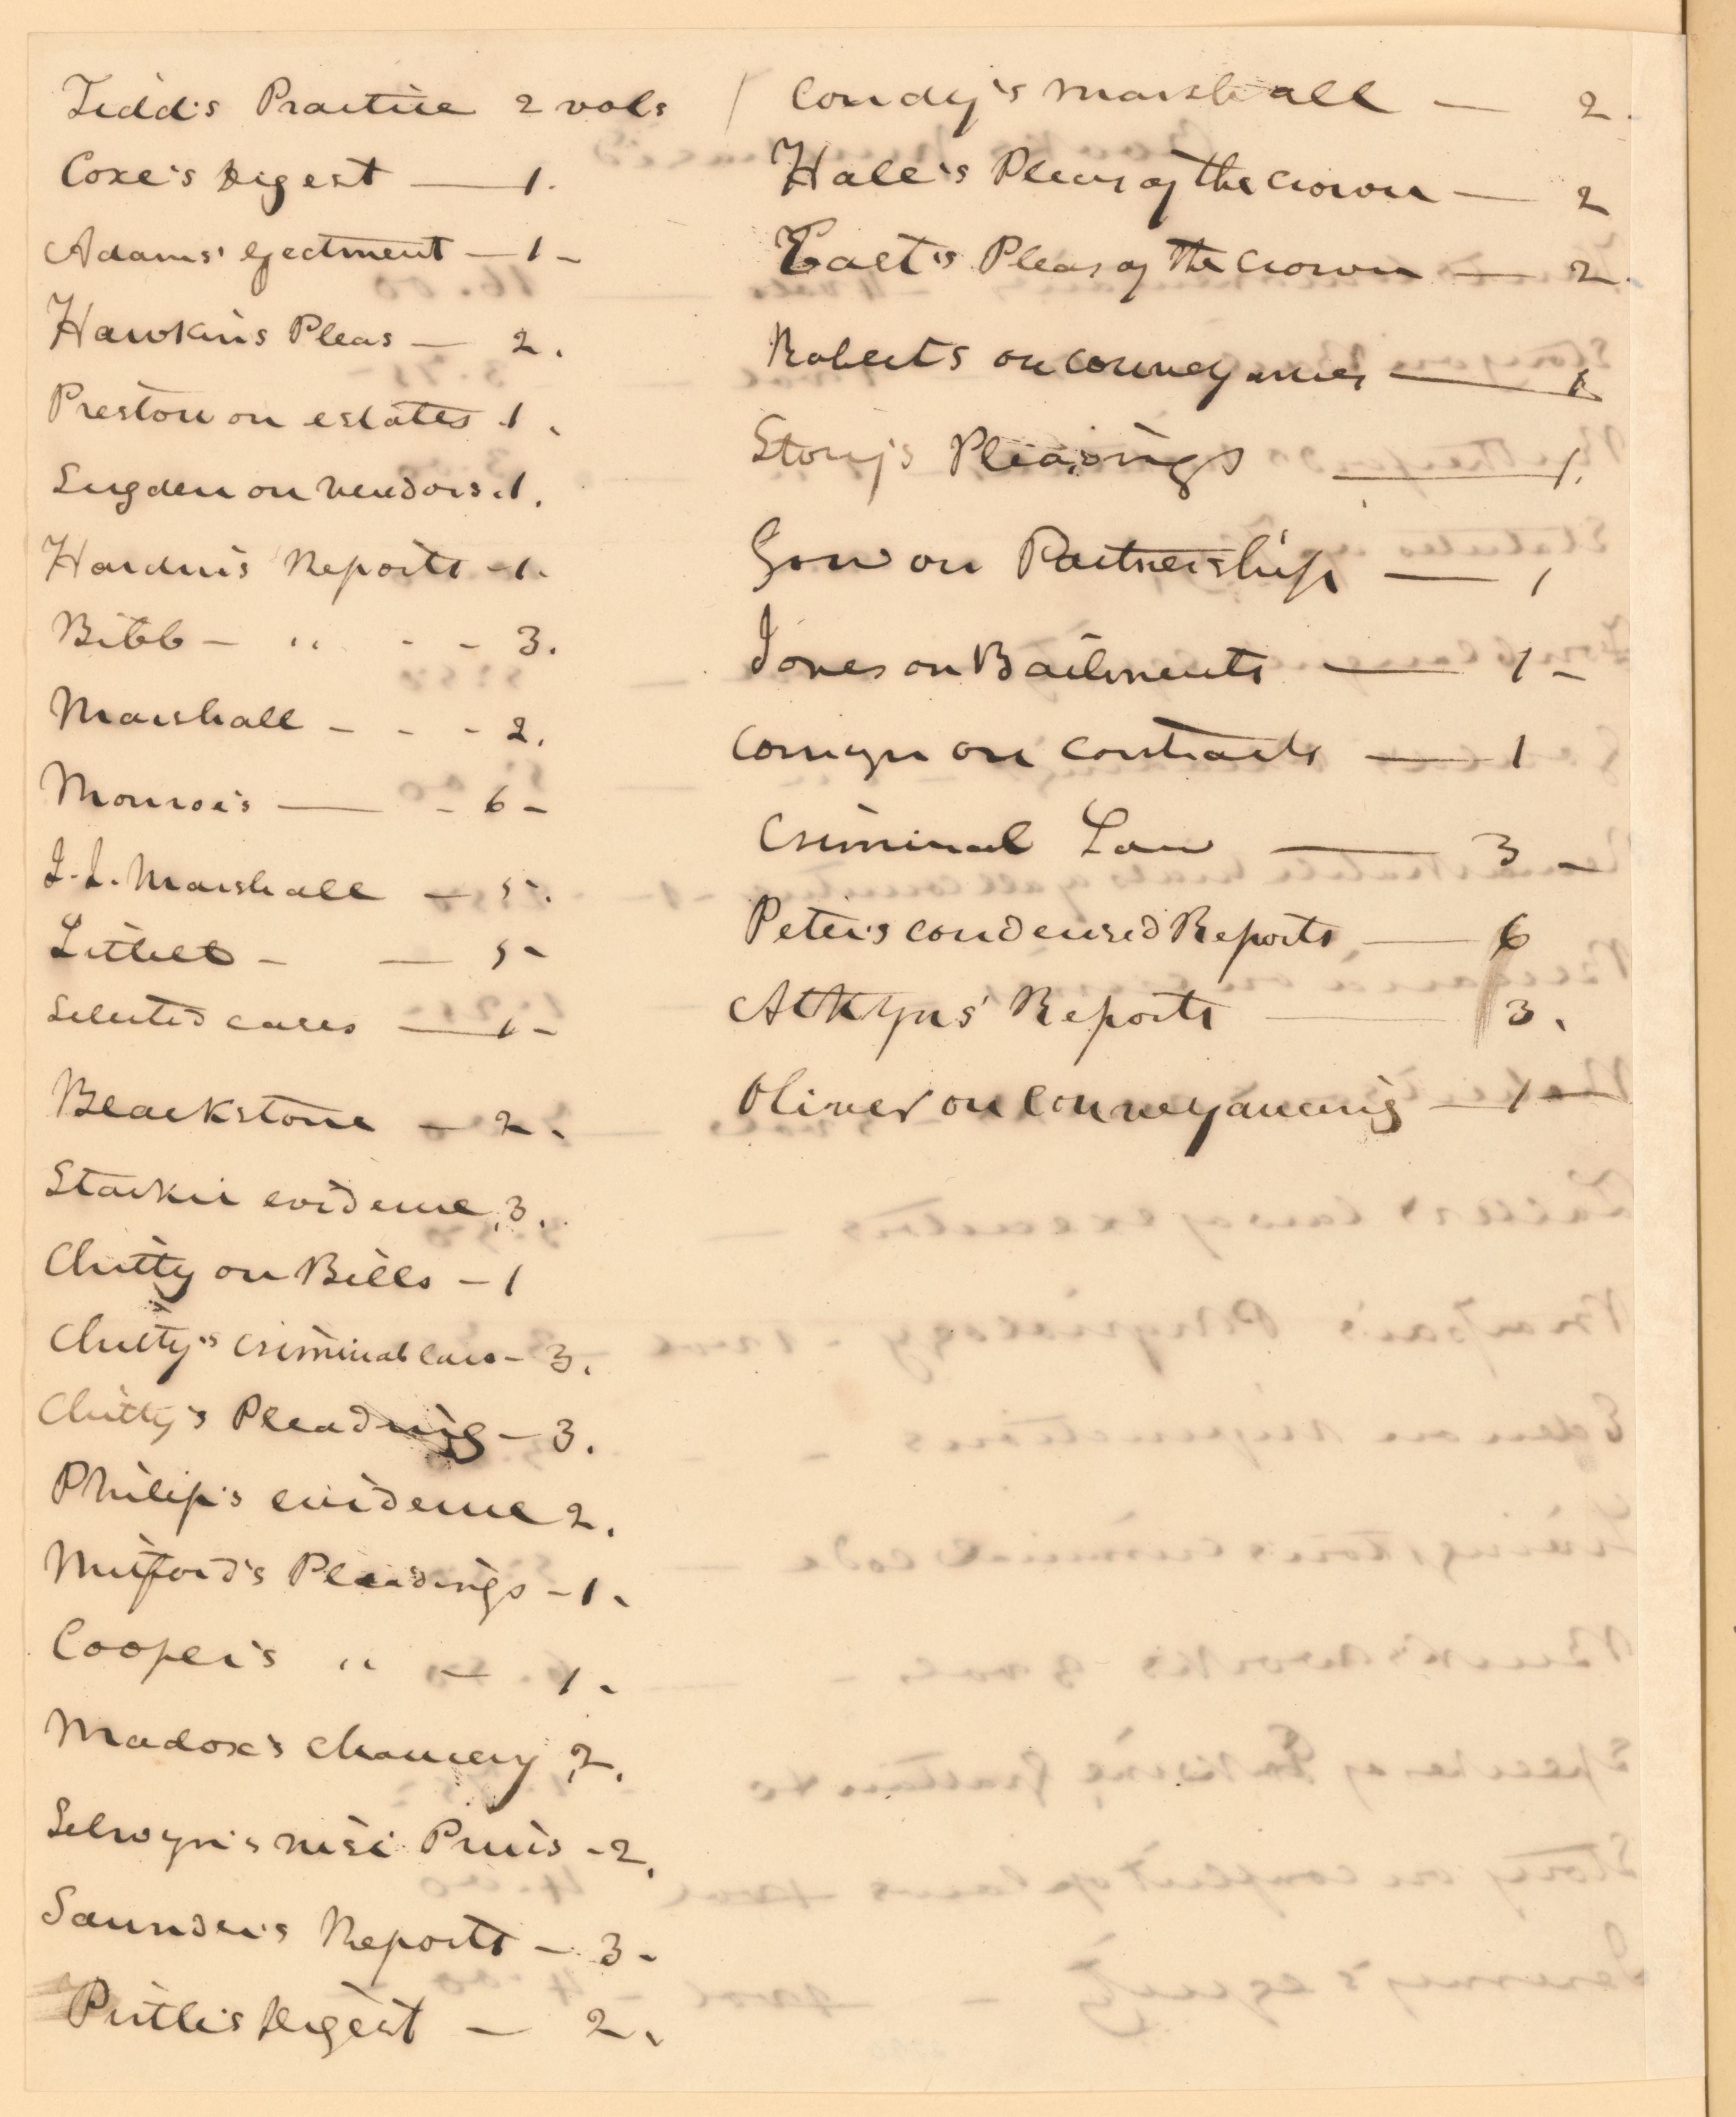 Tidd's Practice 2 vols
Coxe's Digest — 1.
Adams' ejectment — 1 -
Hawkins Pleas — 2.
Preston on estates .1.
Sugden on vendors .1.
Hardin's Reports - 1.
Bibb - " - - 3.
Marshall - - - 2.
Monroe's — - 6 -
J.J. Marshall — 5.
Littell - — 5 -
Selected cases — 1 -
Blackstone — 2.
Starkie evidence, 3.
Chitty on Bills - 1
Chitty's criminal law - 3.
Chitty's Pleading - 3.
Philip's evidence 2.
Mitford's Pleadings - 1.
Cooper's " — 1.
Madox's chancery, 2.
Selwyn's nisi Prius - 2.
Saunder's Reports - 3 -
Pirtle's Digest — 2.
Condy's Marshall — 2.
Hale's Pleas of the crown — 2
East's Pleas of the Crown — 2.
Roberts on conveyances — 1
Story's Pleadings — 1.
Gow on Partnership — 1
Jones on Bailments — 1 -
Comyn on contracts — 1
Criminal Law — 3 -
Peters condensed Reports — 6
Atkyns' Reports — 3.
Oliver on Conveyancing — 1 —